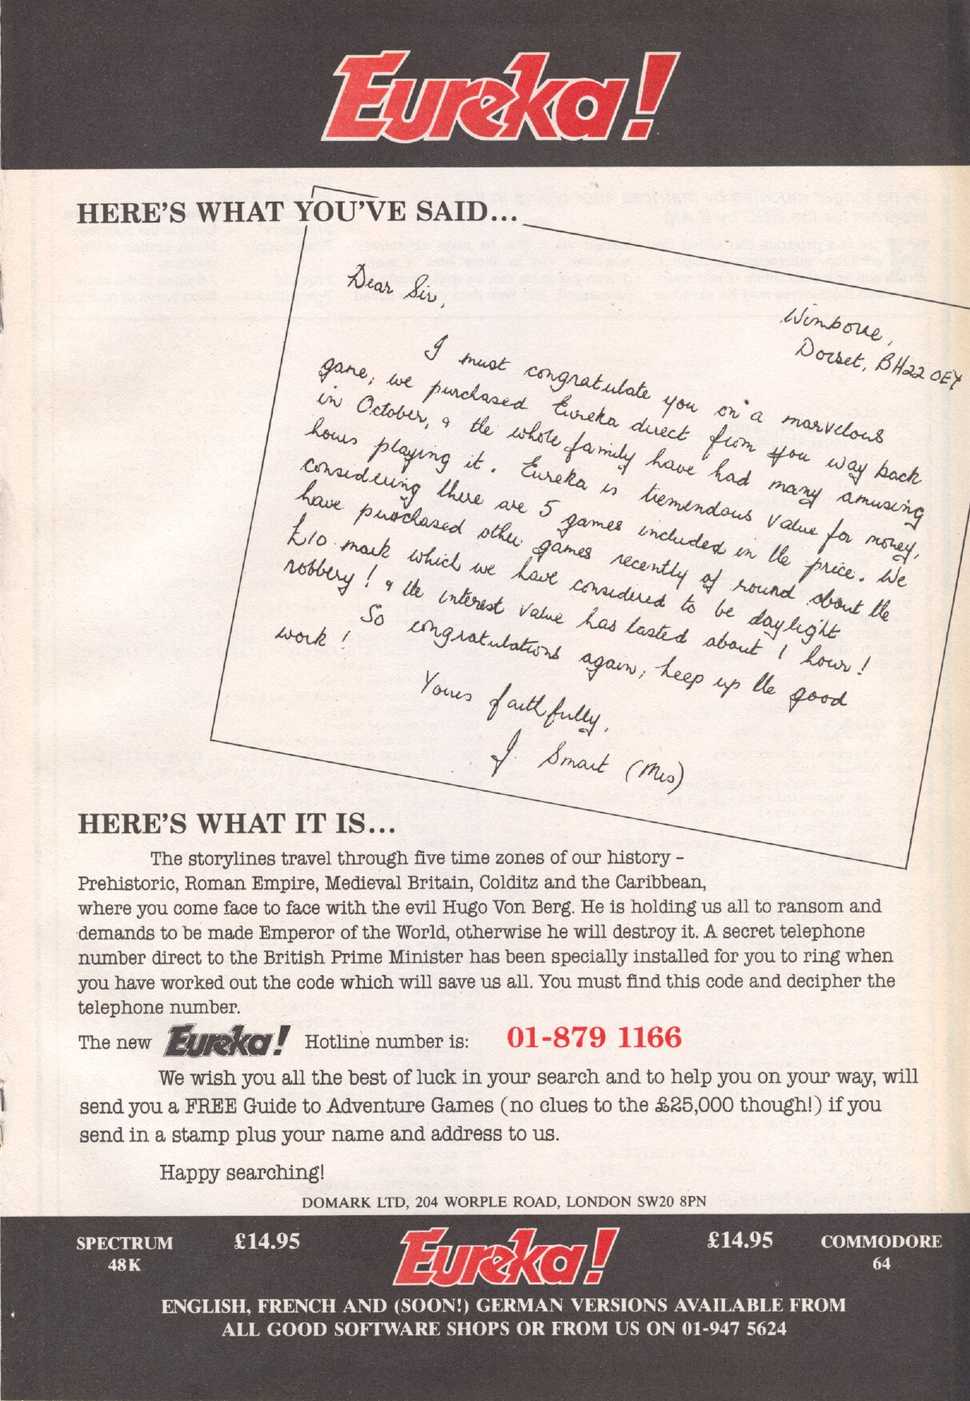 Eureka!
HERE'S WHAT YOU'VE SAID...
Dear Sir,
Wimborne,
Dorset, BH22 0EY
I must congratulate you on a marvelous
game; we purchased Eureka direct from you way back
in October, & the whole family have had many amusing
hours playing it. Eureka is tremendous value for money,
considering there are 5 games included in the price. We
have purchased other games recently of round about the
£10 mark which we have considered to be daylight
robbery! & the interest value has lasted about 1 hour!
So congratulations again, keep up the good
work!
Yours faithfully,
J Smart (Mrs)
HERE'S WHAT IT IS...
The storylines travel through five time zones of our history –
Prehistoric, Roman Empire, Medieval Britain, Colditz and the Caribbean,
where you come face to face with the evil Hugo Von Berg. He is holding us all to ransom and
demands to be made Emperor of the World, otherwise he will destroy it. A secret telephone
number direct to the British Prime Minister has been specially installed for you to ring when
you have worked out the code which will save us all. You must find this code and decipher the
telephone number.
The new Eureka! Hotline number is: 01-879 1166
We wish you all the best of luck in your search and to help you on your way, will
send you a FREE Guide to Adventure Games (no clues to the £25,000 though!) if you
send in a stamp plus your name and address to us.
Happy searching!
DOMARK LTD, 204 WORPLE ROAD, LONDON SW20 8PN
SPECTRUM £14.95 Eureka! £14.95 COMMODORE
48K 64
ENGLISH, FRENCH AND (SOON!) GERMAN VERSIONS AVAILABLE FROM
ALL GOOD SOFTWARE SHOPS OR FROM US ON 01-947 5624